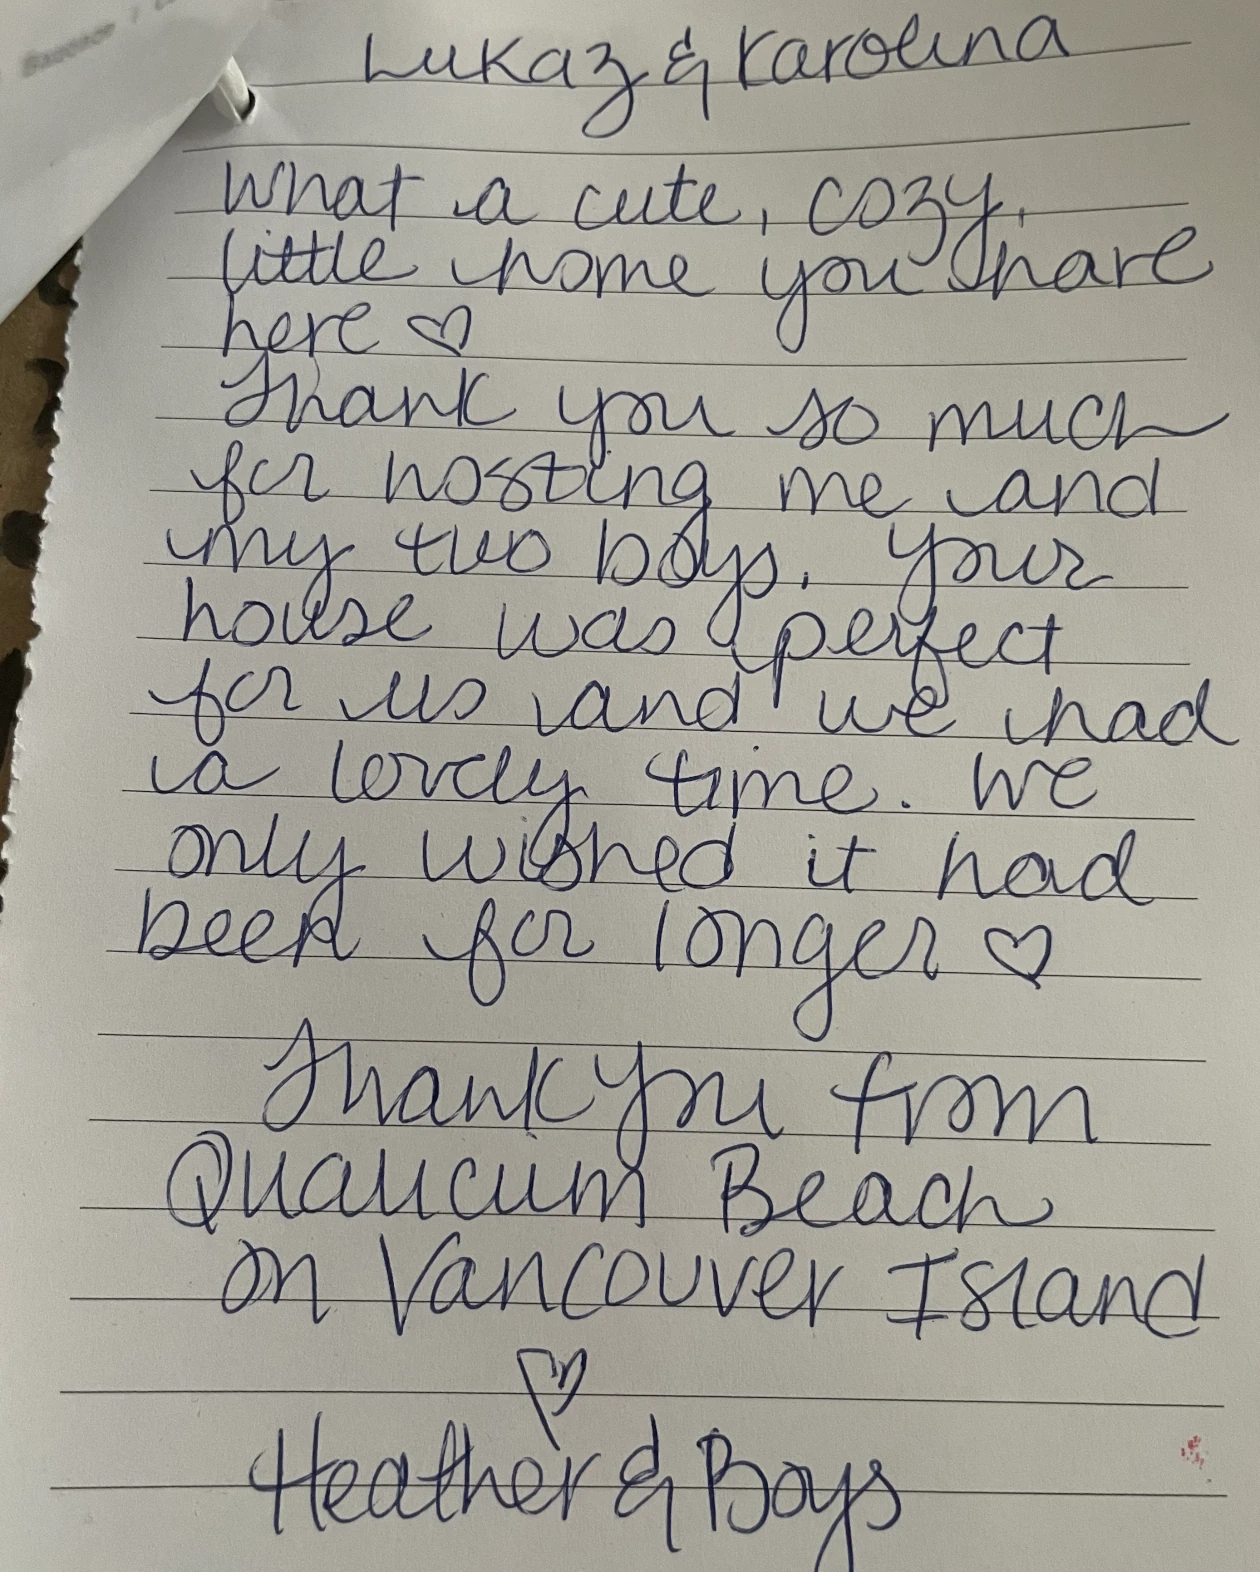 Lukaz & Karolina
What a cute, cozy,
little home you share
here ♡
Thank you so much
for hosting me and
my two boys. Your
house was perfect
for us and we had
a lovely time. We
only wished it had
been for longer ♡
Thank you from
Qualicum Beach
on Vancouver Island
♡
Heather & Boys